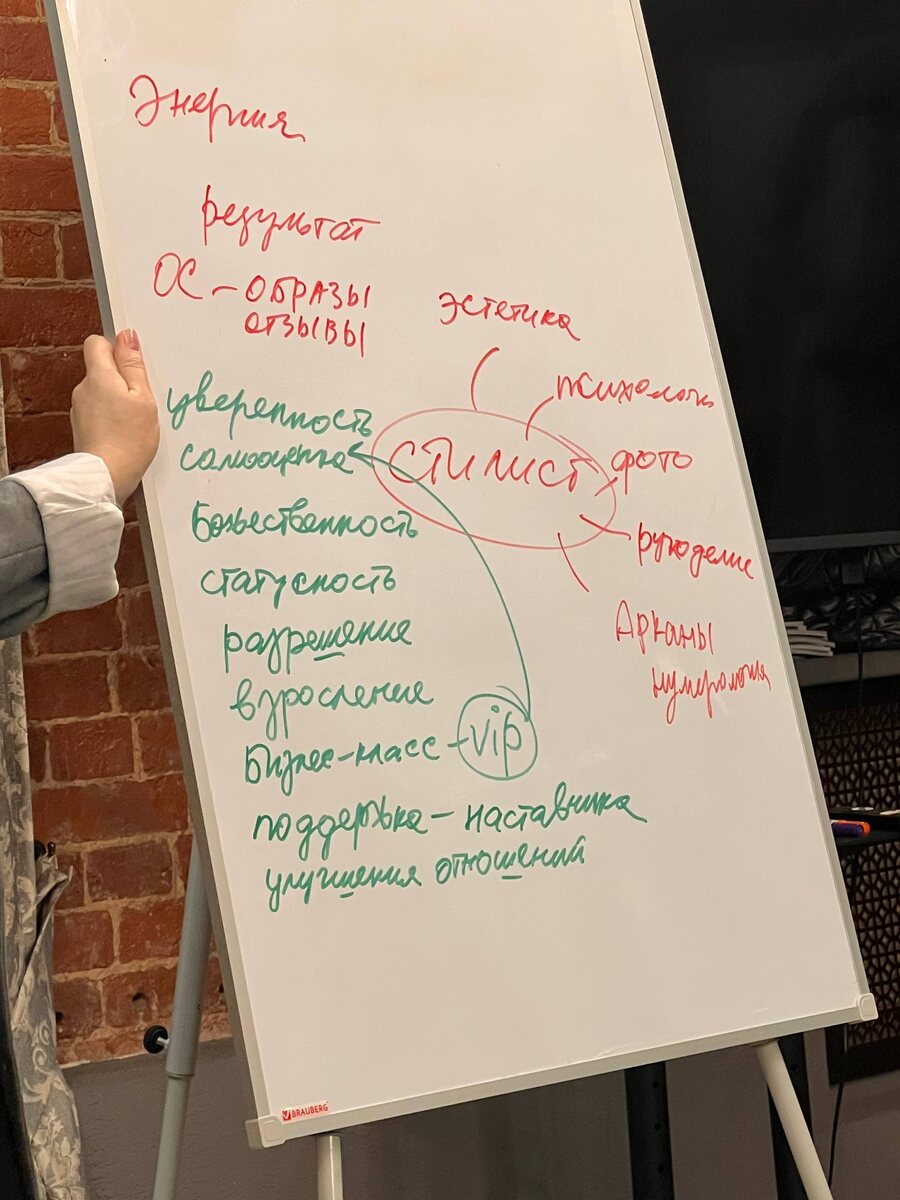 Энергия
результат
ОС - ОБРАЗЫ
ОТЗЫВЫ
эстетика
психология
СТИЛИСТ
фото
рукоделие
Арканы
нумерология
уверенность
самооценка
Божественность
статусность
разрешение
взросление
Бизнес-класс - vip
поддержка - наставника
улучшения отношений
BRAUBERG